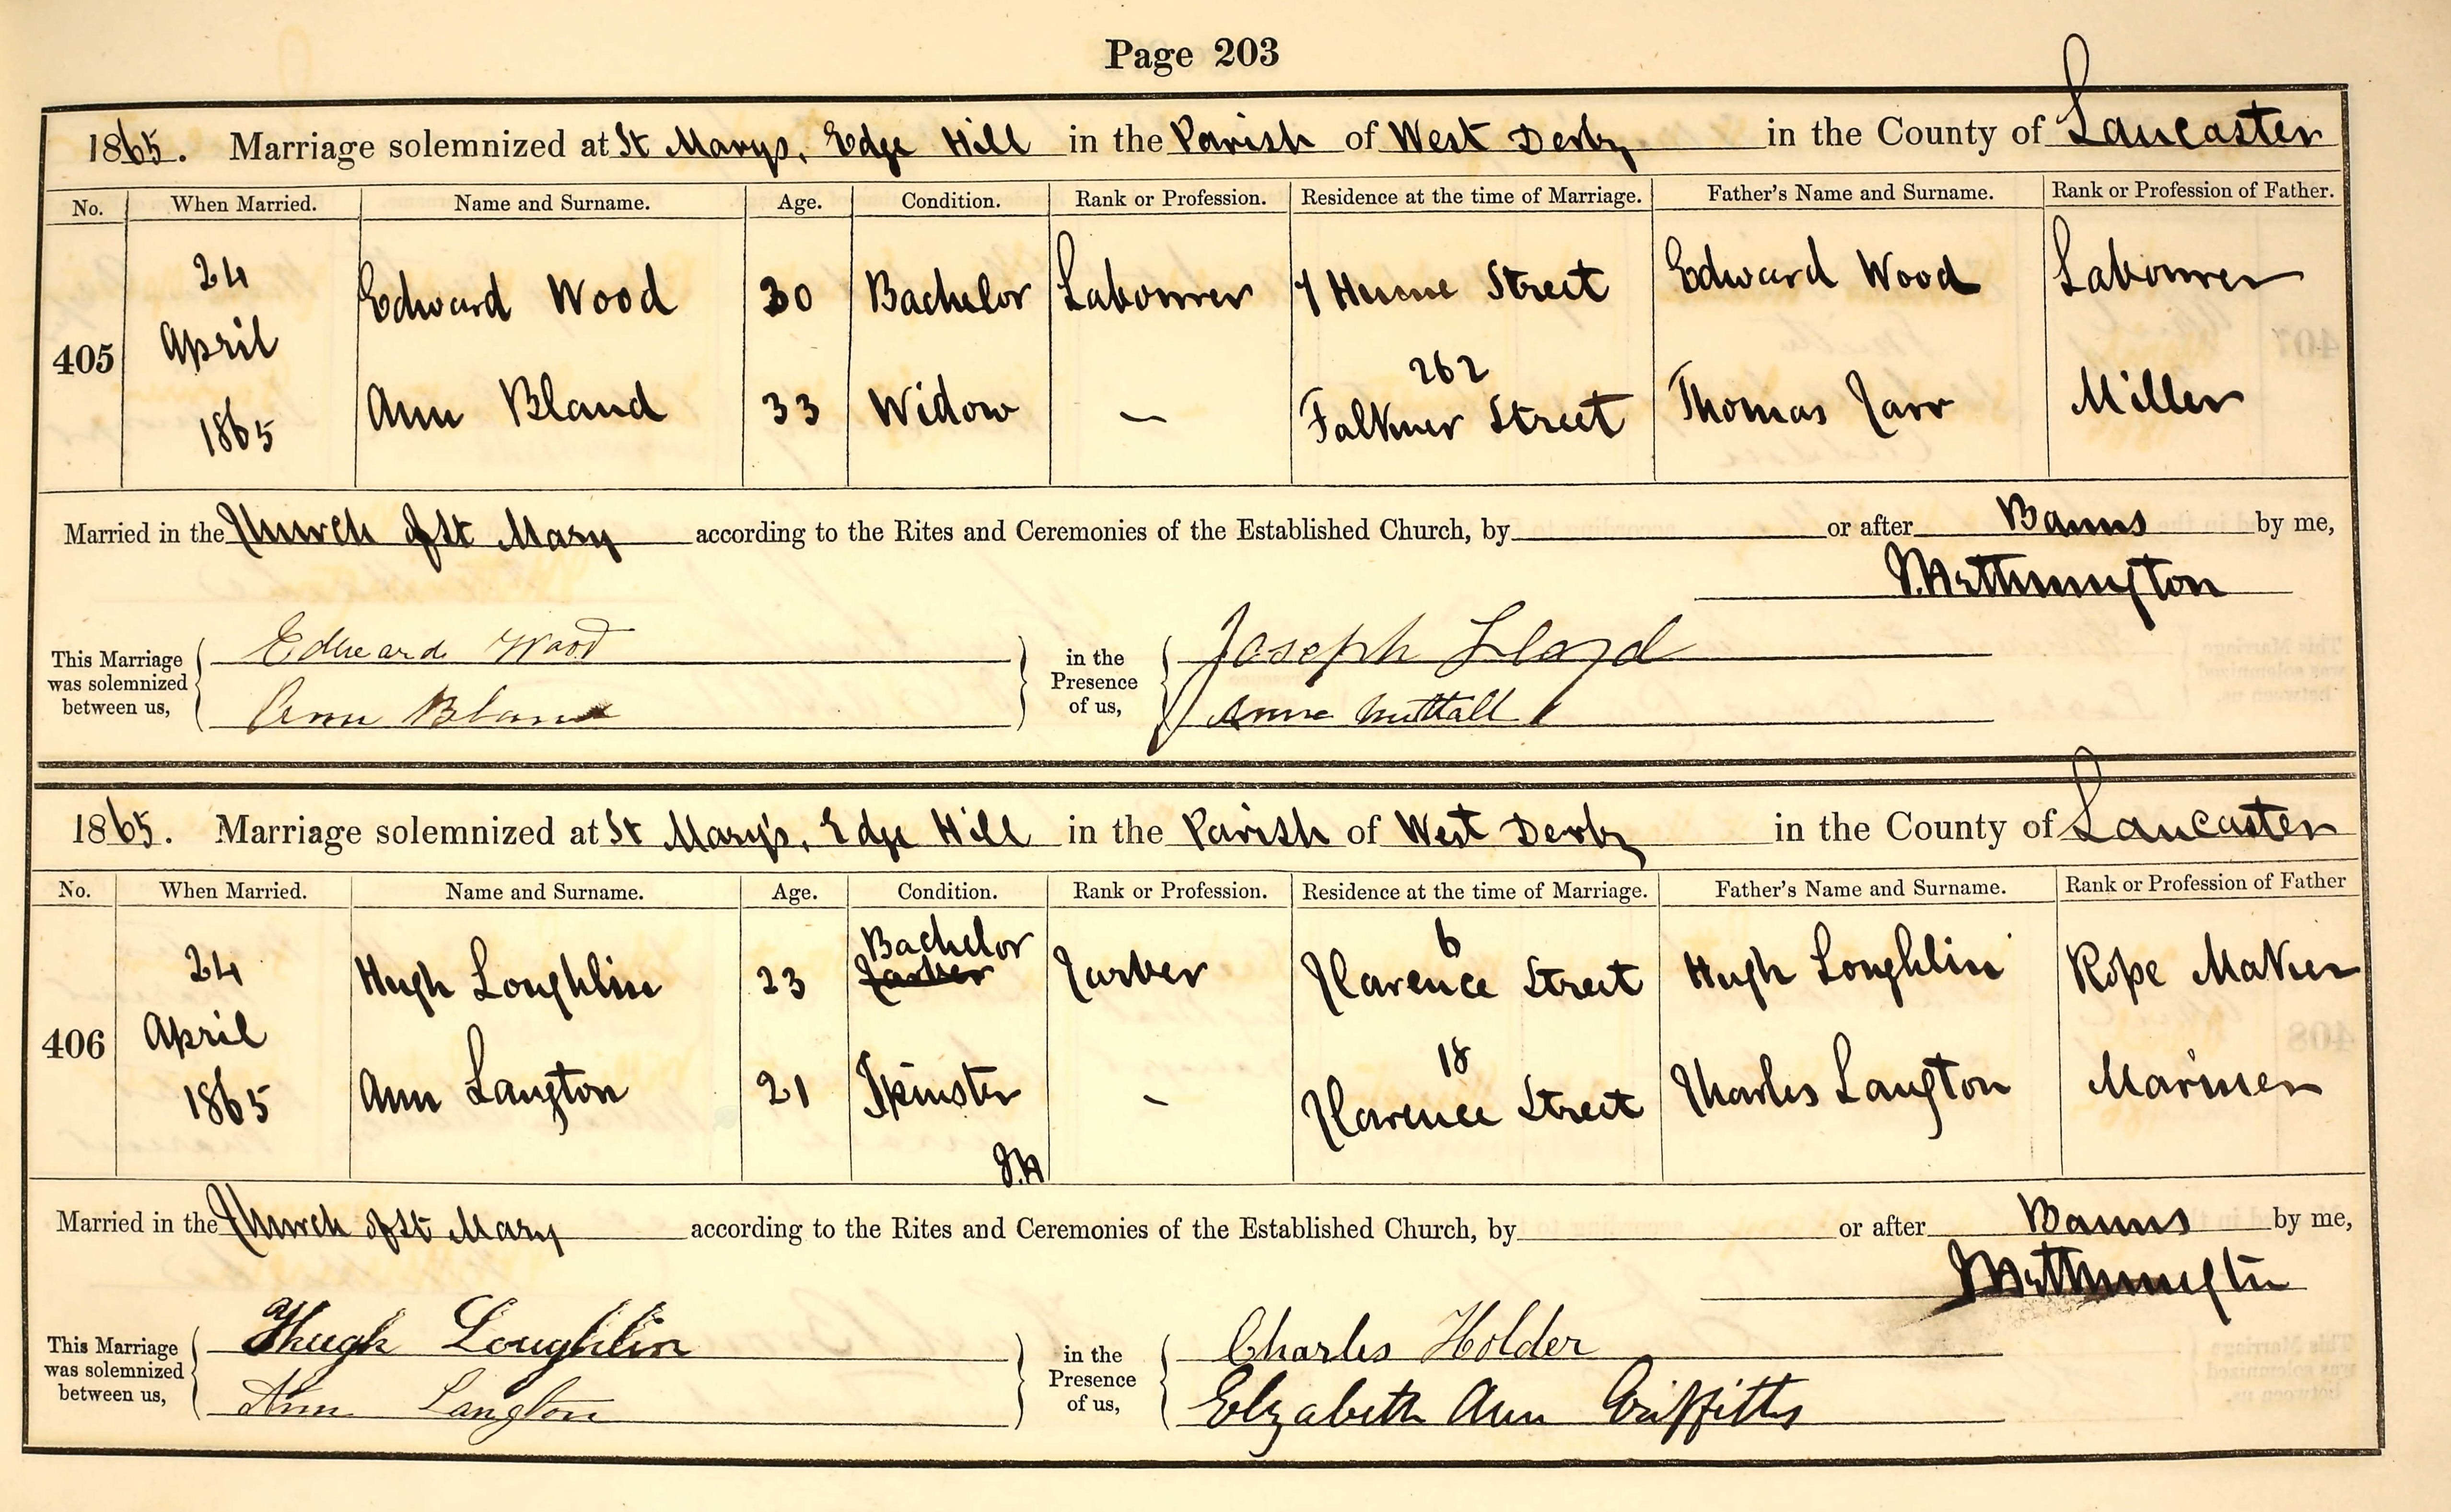 Page 203
1865. Marriage solemnized at St Mary's, Edge Hill in the Parish of West Derby in the County of Lancaster
No. When Married. Name and Surname. Age. Condition. Rank or Profession. Residence at the time of Marriage. Father's Name and Surname. Rank or Profession of Father.
405
24 April 1865
Edward Wood 30 Bachelor Labourer 7 Hume Street Edward Wood Labourer
262
Ann Bland 33 Widow — Falkner Street Thomas Carr Miller
Married in the Church of St Mary according to the Rites and Ceremonies of the Established Church, by or after Banns by me,
This Marriage was solemnized between us,
Edward Wood
Ann Bland
in the Presence of us,
Joseph Lloyd
Anne Nuttall
1865. Marriage solemnized at St Mary's, Edge Hill in the Parish of West Derby in the County of Lancaster
No. When Married. Name and Surname. Age. Condition. Rank or Profession. Residence at the time of Marriage. Father's Name and Surname. Rank or Profession of Father
406
24 April 1865
Bachelor 6
Hugh Loughlin 23 Carter Carter Clarence Street Hugh Loughlin Rope Maker
18
Ann Langton 21 Spinster - Clarence Street Charles Langton Mariner
Married in the Church of St Mary according to the Rites and Ceremonies of the Established Church, by or after Banns by me,
This Marriage was solemnized between us,
Hugh Loughlin
Ann Langton
in the Presence of us,
Charles Holder
Elizabeth Ann Griffitts